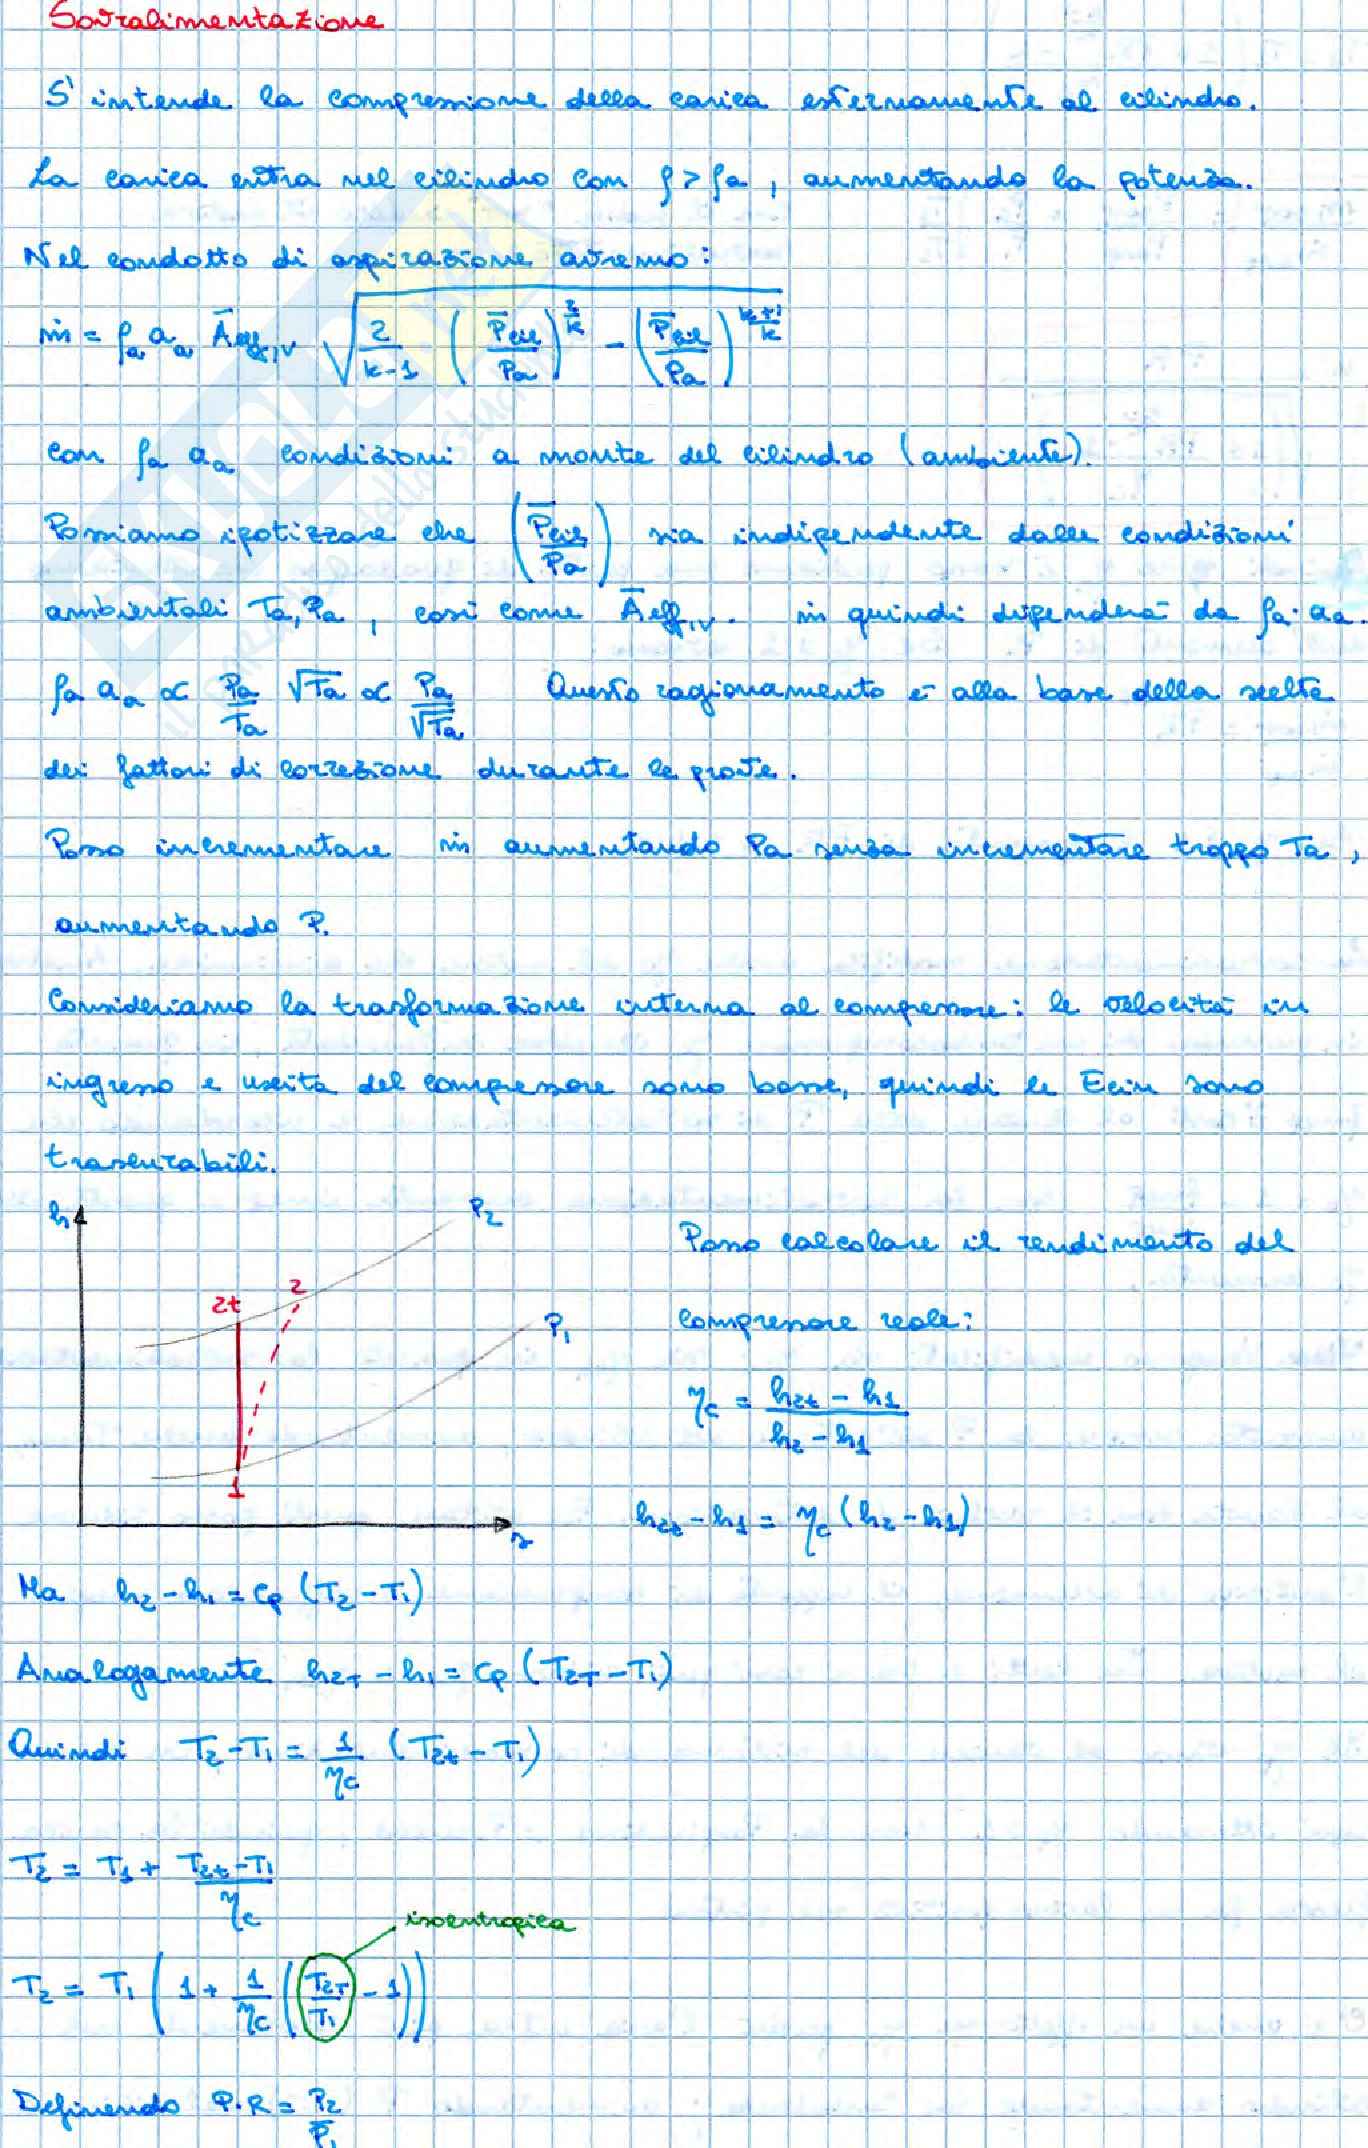 Sovralimentazione
S'intende la compressione della carica esternamente al cilindro.
La carica entra nel cilindro con ρ > ρa , aumentando la potenza.
Nel condotto di aspirazione avremo:
ṁ = ρa aa Āeff,v √( 2/(k-1) (P̄cil/Pa)^(2/k) - (P̄cil/Pa)^((k+1)/k) )
con ρa aa condizioni a monte del cilindro (ambiente).
Possiamo ipotizzare che (P̄cil/Pa) sia indipendente dalle condizioni
ambientali Ta, Pa , così come Āeff,v. ṁ quindi dipenderà da ρa · aa.
ρa aa ∝ Pa/Ta √Ta ∝ Pa/√Ta Questo ragionamento è alla base della scelta
dei fattori di correzione durante le prove.
Posso incrementare ṁ aumentando Pa senza incrementare troppo Ta ,
aumentando P.
Consideriamo la trasformazione interna al compressore: le velocità in
ingresso e uscita del compressore sono basse, quindi le Ecin sono
trascurabili.
h
P2
2
2t
P1
1
s
Posso calcolare il rendimento del
compressore reale:
ηc = (h2t - h1)/(h2 - h1)
h2t - h1 = ηc (h2 - h1)
Ma h2 - h1 = cp (T2 - T1)
Analogamente h2T - h1 = cp (T2T - T1)
Quindi T2 - T1 = 1/ηc (T2t - T1)
T2 = T1 + (T2t - T1)/ηc
isoentropica
T2 = T1 (1 + 1/ηc (T2T/T1 - 1))
Definendo P.R = P2/P1